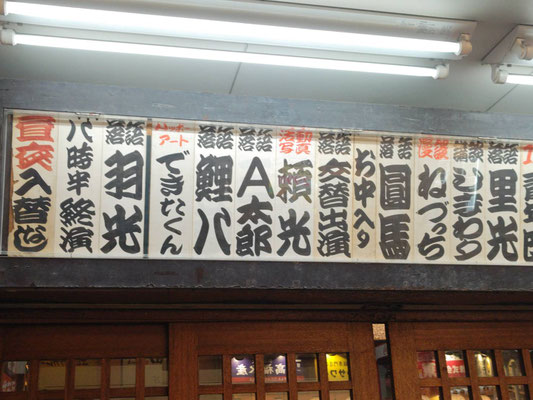 落語 里光
講談 ひまわり
漫談 ねづっち
落語 圓馬
お中入り
落語 交替出演
活動写真 頼光
落語 A太郎
落語 鯉八
ハッポゥアート できたくん
落語 羽光
八時半終演
昼夜入替なし